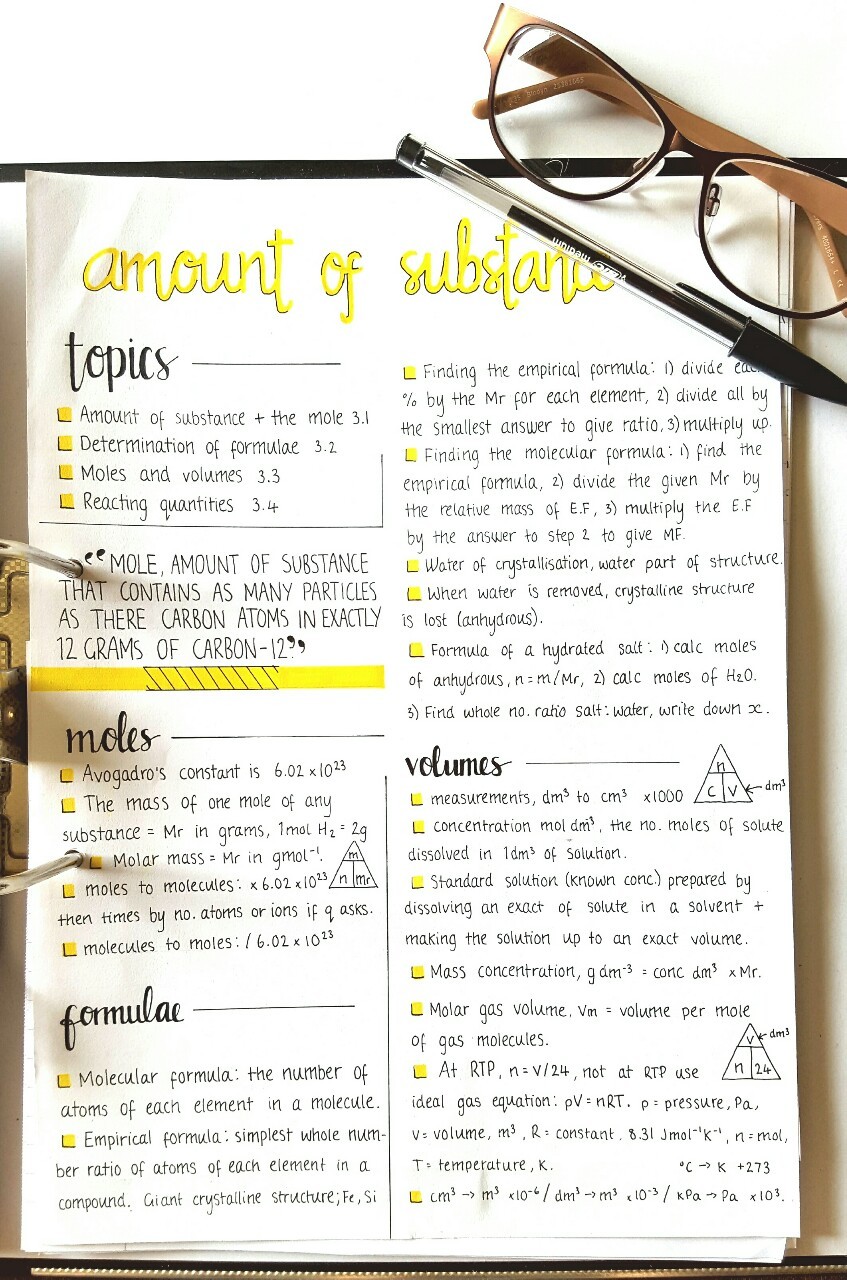 amount of substance
topics
Amount of substance + the mole 3.1
Determination of formulae 3.2
Moles and volumes 3.3
Reacting quantities 3.4
“MOLE, AMOUNT OF SUBSTANCE
THAT CONTAINS AS MANY PARTICLES
AS THERE CARBON ATOMS IN EXACTLY
12 GRAMS OF CARBON-12”
moles
Avogadro's constant is 6.02 x10²³
The mass of one mole of any
substance = Mr in grams, 1mol H₂ = 2g
Molar mass = Mr in gmol⁻¹.
m
moles to molecules: x 6.02 x10²³
n mr
then times by no. atoms or ions if q asks.
molecules to moles: / 6.02 x 10²³
formulae
Molecular formula: the number of
atoms of each element in a molecule.
Empirical formula: simplest whole num-
ber ratio of atoms of each element in a
compound. Giant crystalline structure; Fe, Si
Finding the empirical formula: 1) divide
% by the Mr for each element, 2) divide all by
the smallest answer to give ratio, 3) multiply up.
Finding the molecular formula: 1) find the
empirical formula, 2) divide the given Mr by
the relative mass of E.F, 3) multiply the E.F
by the answer to step 2 to give MF.
Water of crystallisation, water part of structure.
When water is removed, crystalline structure
is lost (anhydrous).
Formula of a hydrated salt: 1) calc moles
of anhydrous, n=m/Mr, 2) calc moles of H₂O.
3) Find whole no. ratio salt: water, write down x.
volumes
n
C V ← dm³
measurements, dm³ to cm³ x1000
concentration mol dm³, the no. moles of solute
dissolved in 1dm³ of solution.
Standard solution (known conc.) prepared by
dissolving an exact of solute in a solvent +
making the solution up to an exact volume.
Mass concentration, g dm⁻³ = conc dm³ x Mr.
Molar gas volume, Vm = volume per mole
of gas molecules.
V ← dm³
n 24
At RTP, n=V/24, not at RTP use
ideal gas equation: pV=nRT. p=pressure, Pa,
V= volume, m³, R= constant, 8.31 Jmol⁻¹K⁻¹, n=mol,
T= temperature, K. °C → K +273
cm³ → m³ x10⁻⁶ / dm³ → m³ x10⁻³ / kPa → Pa x10³.
medium